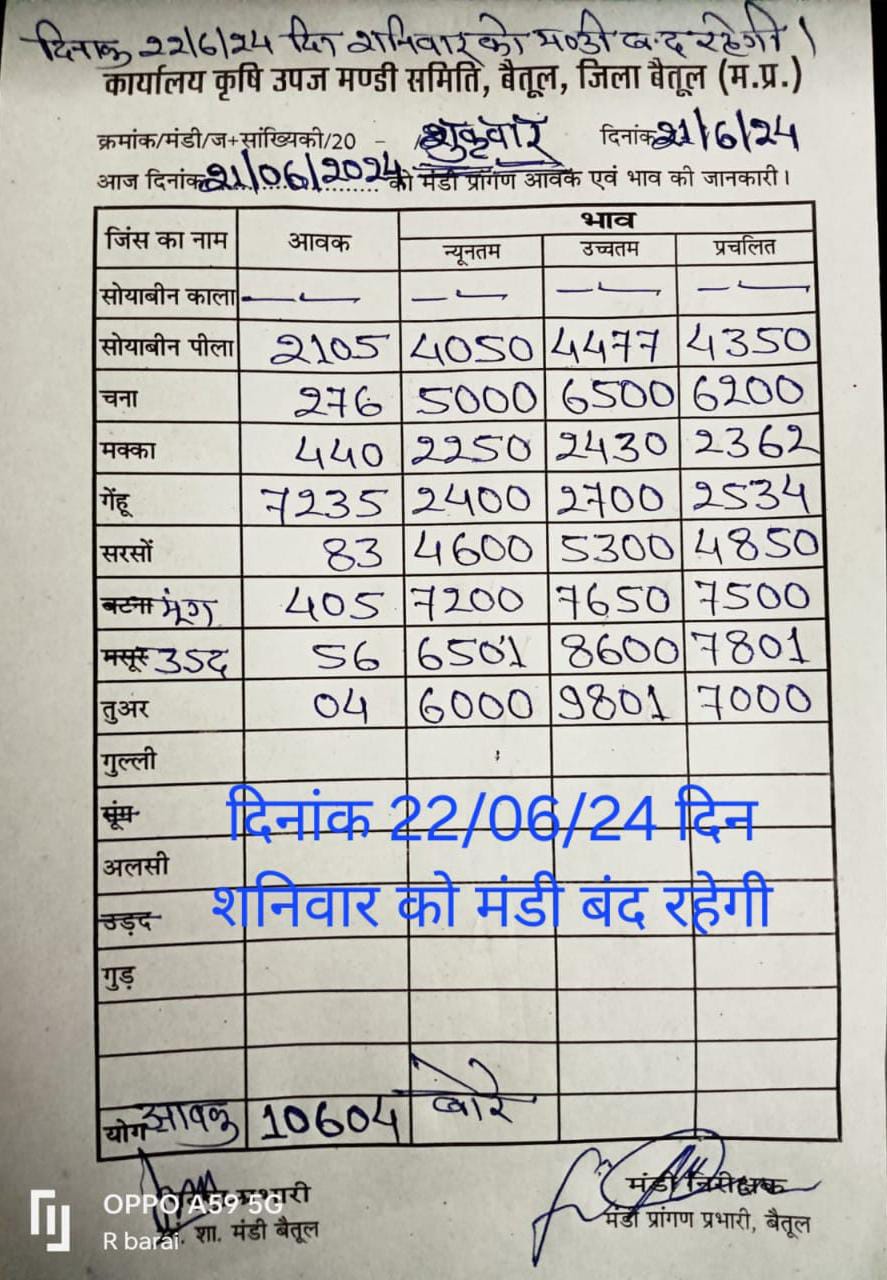 दिनांक 22/6/24 दिन शनिवार को मण्डी बन्द रहेगी।
कार्यालय कृषि उपज मण्डी समिति, बैतूल, जिला बैतूल (म.प्र.)
क्रमांक/मंडी/ज+सांख्यिकी/20 - शुक्रवार दिनांक 21/6/24
आज दिनांक 21/06/2024 को मंडी प्रांगण आवक एवं भाव की जानकारी।
जिंस का नाम आवक भाव
न्यूनतम उच्चतम प्रचलित
सोयाबीन काला — — — —
सोयाबीन पीला 2105 4050 4477 4350
चना 276 5000 6500 6200
मक्का 440 2250 2430 2362
गेंहू 7235 2400 2700 2534
सरसों 83 4600 5300 4850
बटना मूंग 405 7200 7650 7500
मसूर उड़द 56 6501 8600 7801
तुअर 04 6000 9801 7000
गुल्ली
मूंग
दिनांक 22/06/24 दिन
अलसी
शनिवार को मंडी बंद रहेगी
उड़द
गुड़
योग आवक 10604 बोरे
प्रभारी मंडी निरीक्षक
शा. मंडी बैतूल मंडी प्रांगण प्रभारी, बैतूल
OPPO A59 5G
R barai